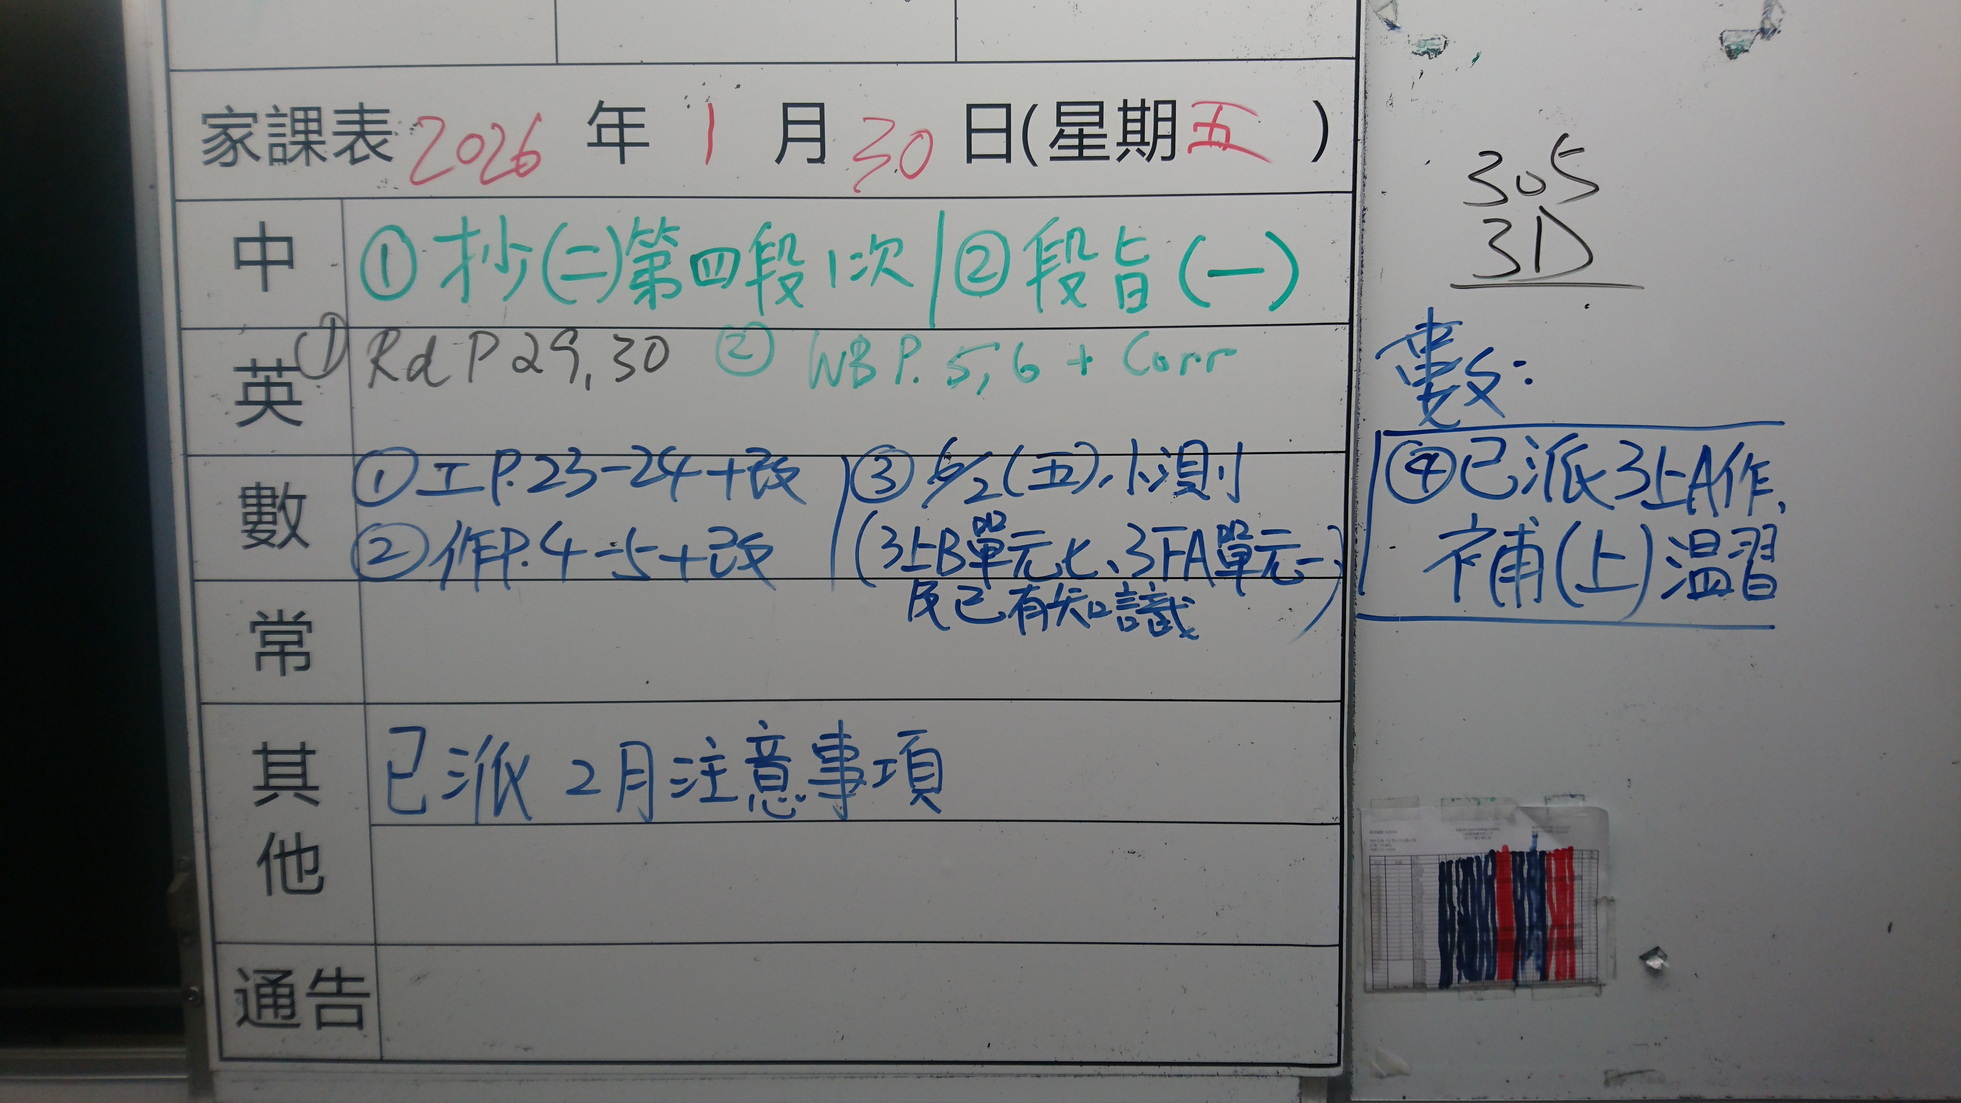 家課表 2026 年 1 月 30 日(星期五)
中 ①抄(二)第四段1次 | ②段旨(一)
英 ① Rd P 29,30 ② WB P. 5,6 + Corr
數 ①工P.23-24+改
②作P.4-5+改
③6/2(五)小測
(3上B單元七、3下A單元一
及已有知識)
常
其他 已派 2月注意事項
通告
305
3D
數:
④已派3上A作,
補(上)溫習